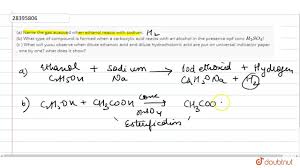 28395806
(a) Name the gas evolved when ethanol reacts with sodium. H2
(b) What type of compound is formed when a carboxylic acid reacts with an alcohol in the presence of conc H2SO4?
(c) What will you observe when dilute ethanoic acid and dilute hydrochloric acid are put on universal indicator paper, one by one? What does it show?
a) Ethanol + Sodium ⟶ Sod ethoxid + Hydrogen
C2H5OH Na C2H5ONa + H2
b) C2H5OH + CH3COOH conc ⇌ H2SO4 CH3COO
"Esterification"
doubtnut